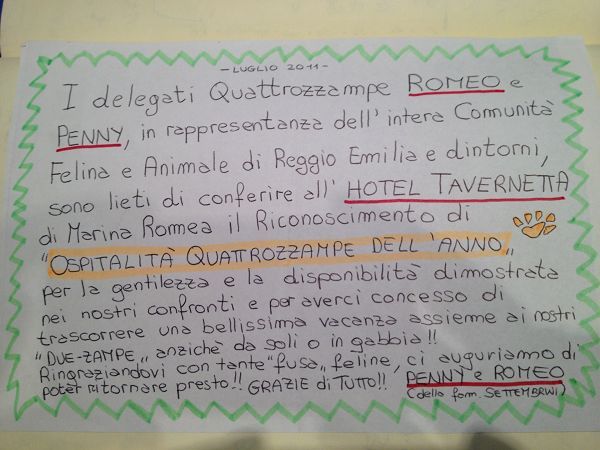 - LUGLIO 2011 -
I delegati Quattrozzampe ROMEO e
PENNY, in rappresentanza dell'intera Comunità
Felina e Animale di Reggio Emilia e dintorni,
sono lieti di conferire all'HOTEL TAVERNETTA
di Marina Romea il Riconoscimento di
"OSPITALITÀ QUATTROZZAMPE DELL'ANNO"
per la gentilezza e la disponibilità dimostrata
nei nostri confronti e per averci concesso di
trascorrere una bellissima vacanza assieme ai nostri
"DUE-ZAMPE" anzichè da soli o in gabbia!!
Ringraziandovi con tante "fusa" feline, ci auguriamo di
poter ritornare presto!! GRAZIE di TUTTO!! PENNY e ROMEO
(della fam. SETTEMBRINI)